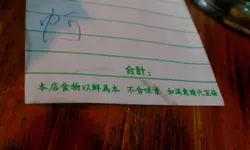 合計：
本店食物以鮮為本 不含味素 如滿意請代宣揚